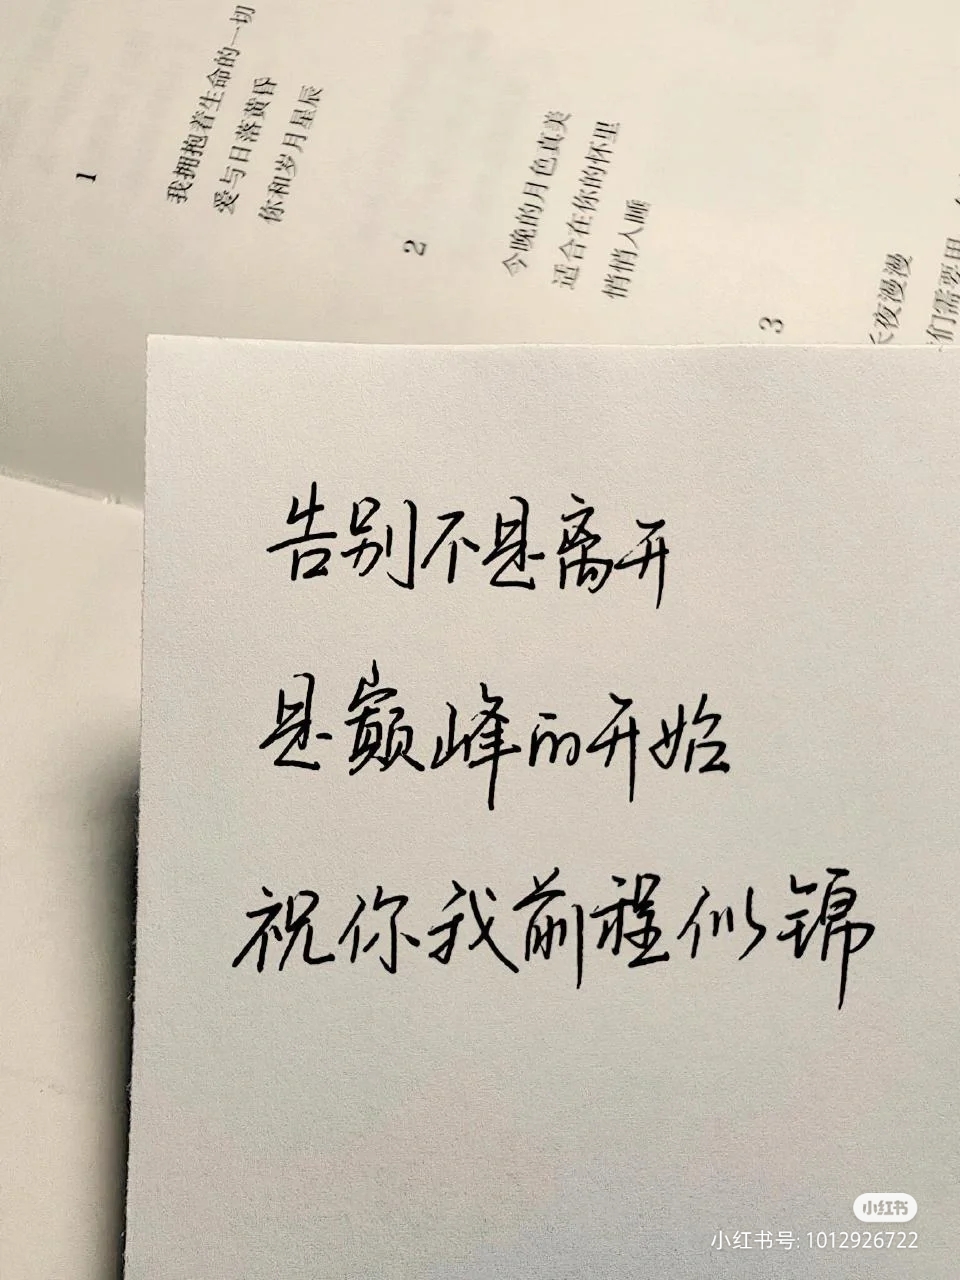 1
我拥抱着生命的一切
爱与日落黄昏
你和岁月星辰
2
今晚的月色真美
适合在你的怀里
悄悄入睡
3
夜漫漫
们需要用
告别不是离开
是巅峰的开始
祝你我前程似锦
小红书
小红书号: 1012926722